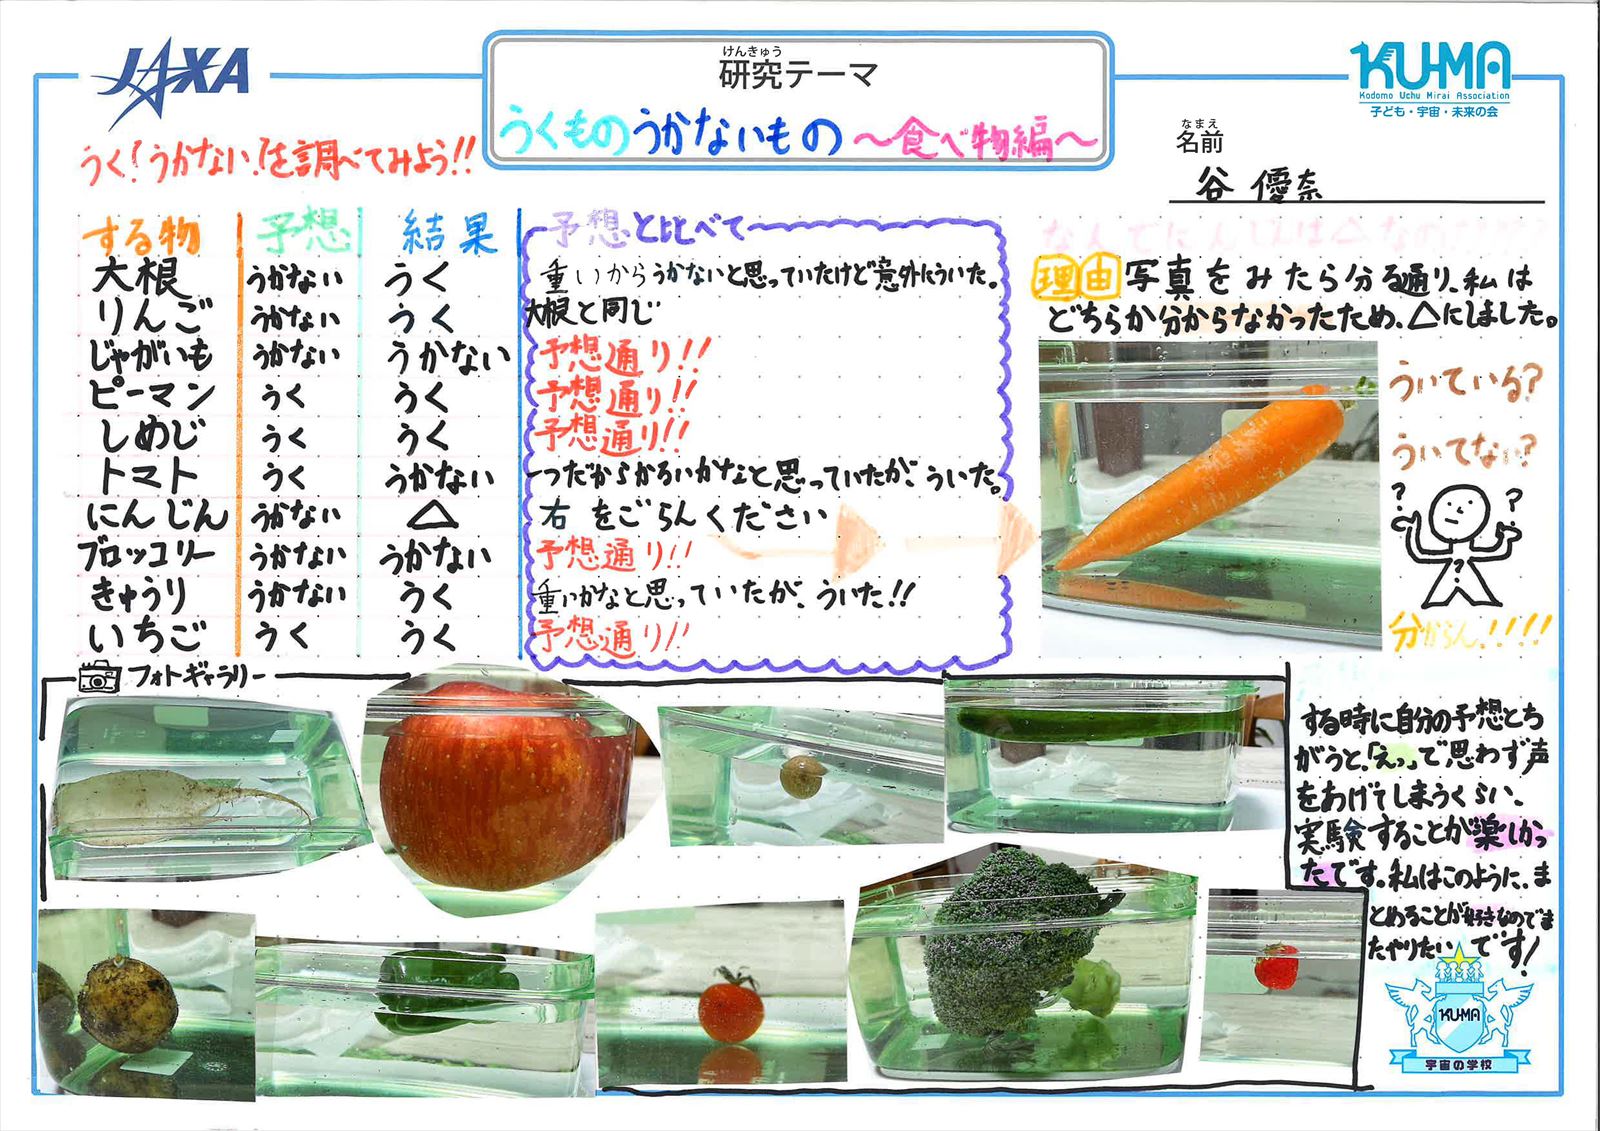 JAXA
けんきゅう
研究テーマ
うくものうかないもの〜食べ物編〜
KU-MA
Kodomo Uchu Mirai Association
子ども・宇宙・未来の会
なまえ
名前
谷 優奈
うく!うかない!を調べてみよう!!
する物 予想 結果 予想と比べて
大根 うかない うく 重いからうかないと思っていたけど意外にういた。
りんご うかない うく 大根と同じ
じゃがいも うかない うかない 予想通り!!
ピーマン うく うく 予想通り!!
しめじ うく うく 予想通り!!
トマト うく うかない 一つだからかるいかなと思っていたが、ういた。
にんじん うかない △ 右をごらんください
ブロッコリー うかない うかない 予想通り!!
きゅうり うかない うく 重いかなと思っていたが、ういた!!
いちご うく うく 予想通り!!
なんでにんじんは△なの????
理由 写真をみたら分る通り、私は
どちらか分からなかったため、△にしました。
ういている?
ういてない?
? ?
?
分からん!!!!
フォトギャラリー
する時に自分の予想とち
がうと、「えっ」で思わず声
をあげてしまうくらい、
実験することが楽しかっ
たです。私はこのように、ま
とめることが好きなのでま
たやりたいです!
KU-MA
宇宙の学校